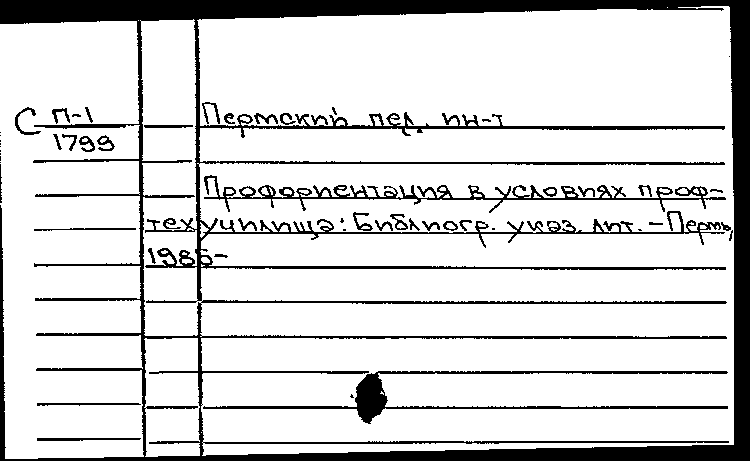 С П-1
1799
Пермский пед. ин-т
Профориентация в условиях проф-
техучилища: Библиогр. указ. лит. – Пермь,
1985-